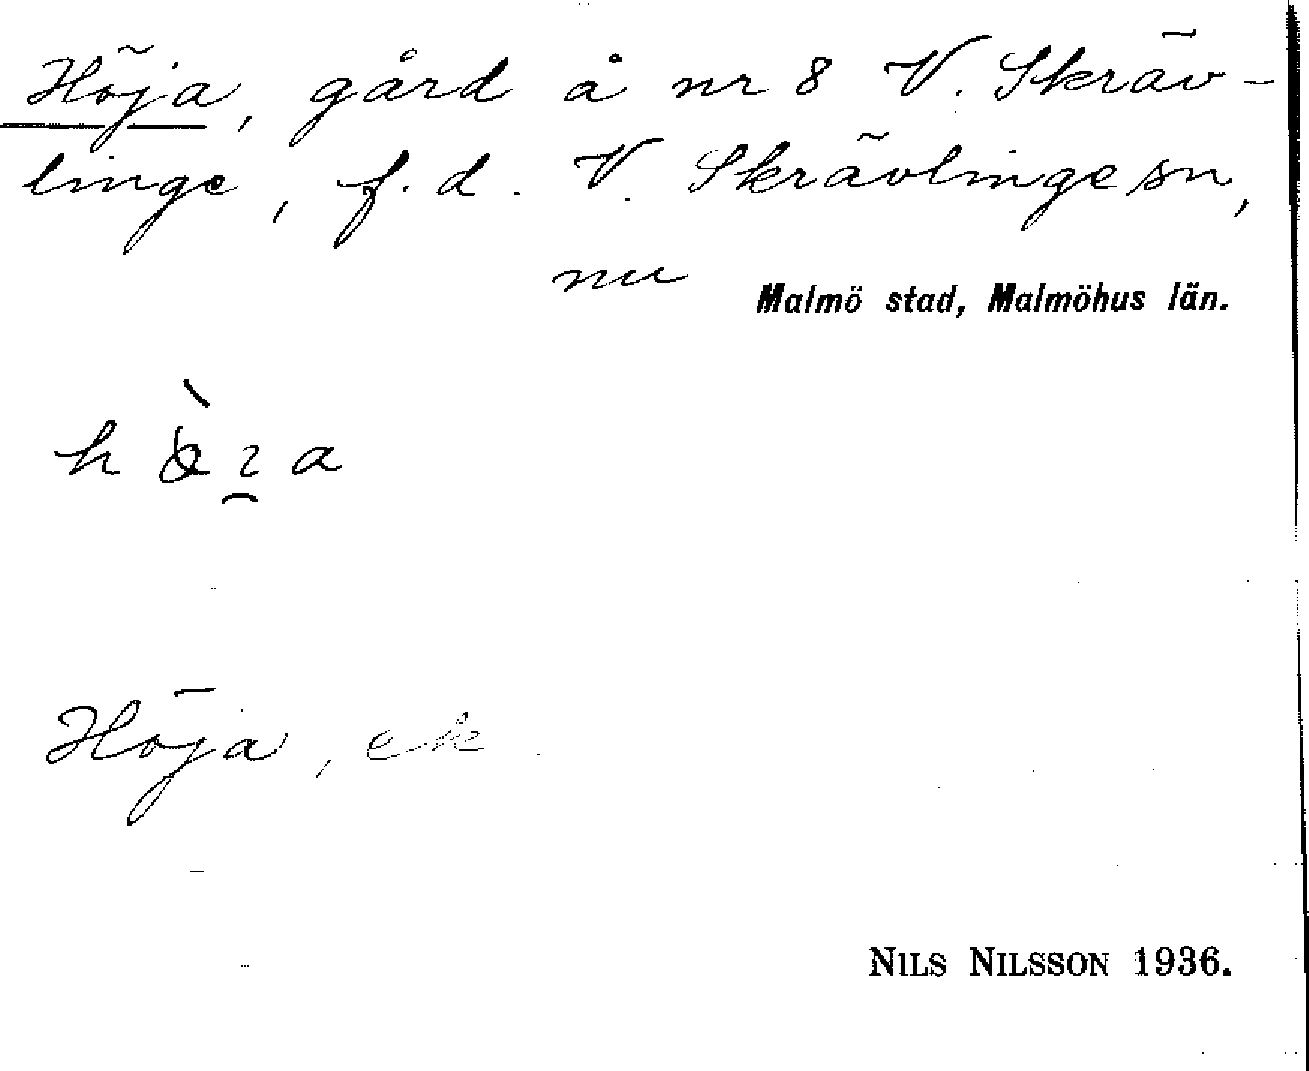 Höja, gård å nr 8 V. Skräv-
linge, f. d. V. Skrävlinge sn,
nu Malmö stad, Malmöhus län.
Höja, ek.
NILS NILSSON 1936.